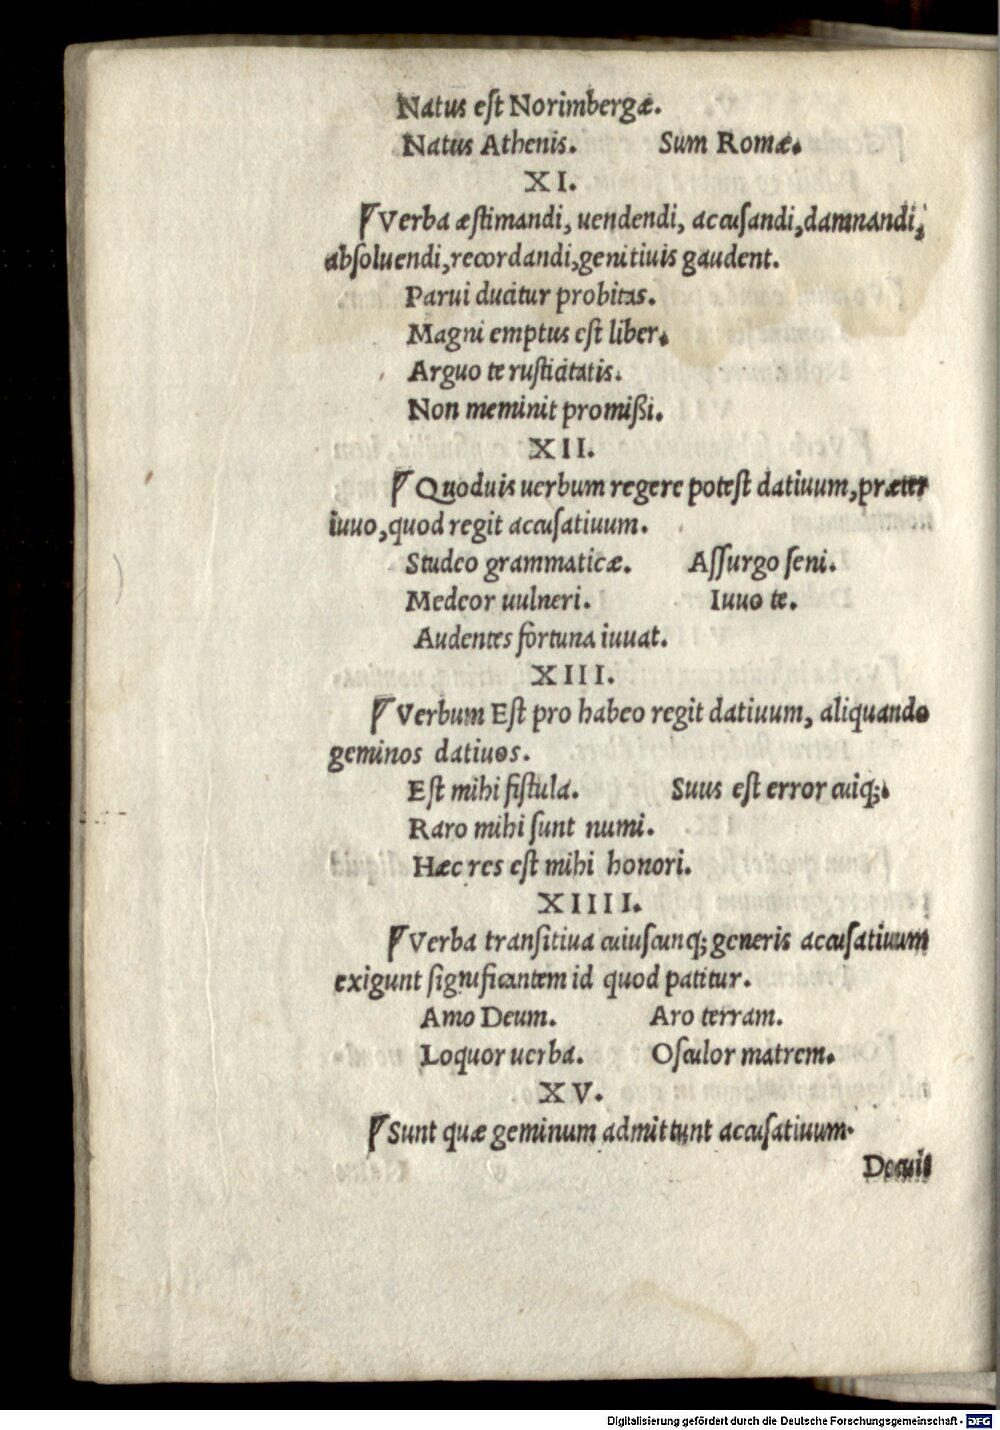 Natus est Norimbergæ.
Natus Athenis. Sum Romæ.
XI.
Verba æstimandi, uendendi, accusandi, damnandi,
absoluendi, recordandi, genitiuis gaudent.
Parui ducitur probitas.
Magni emptus est liber.
Arguo te rusticitatis.
Non meminit promißi.
XII.
Quoduis uerbum regere potest datiuum, præter
iuuo, quod regit accusatiuum.
Studeo grammaticæ. Assurgo seni.
Medeor uulneri. Iuuo te.
Audentes fortuna iuuat.
XIII.
Verbum Est pro habeo regit datiuum, aliquando
geminos datiuos.
Est mihi fistula. Suus est error cuiq;.
Raro mihi sunt numi.
Hæc res est mihi honori.
XIIII.
Verba transitiua cuiuscunq; generis accusatiuum
exigunt significantem id quod patitur.
Amo Deum. Aro terram.
Loquor uerba. Osculor matrem.
XV.
Sunt quæ geminum admittunt accusatiuum.
Docuit
Digitalisierung gefördert durch die Deutsche Forschungsgemeinschaft - DFG